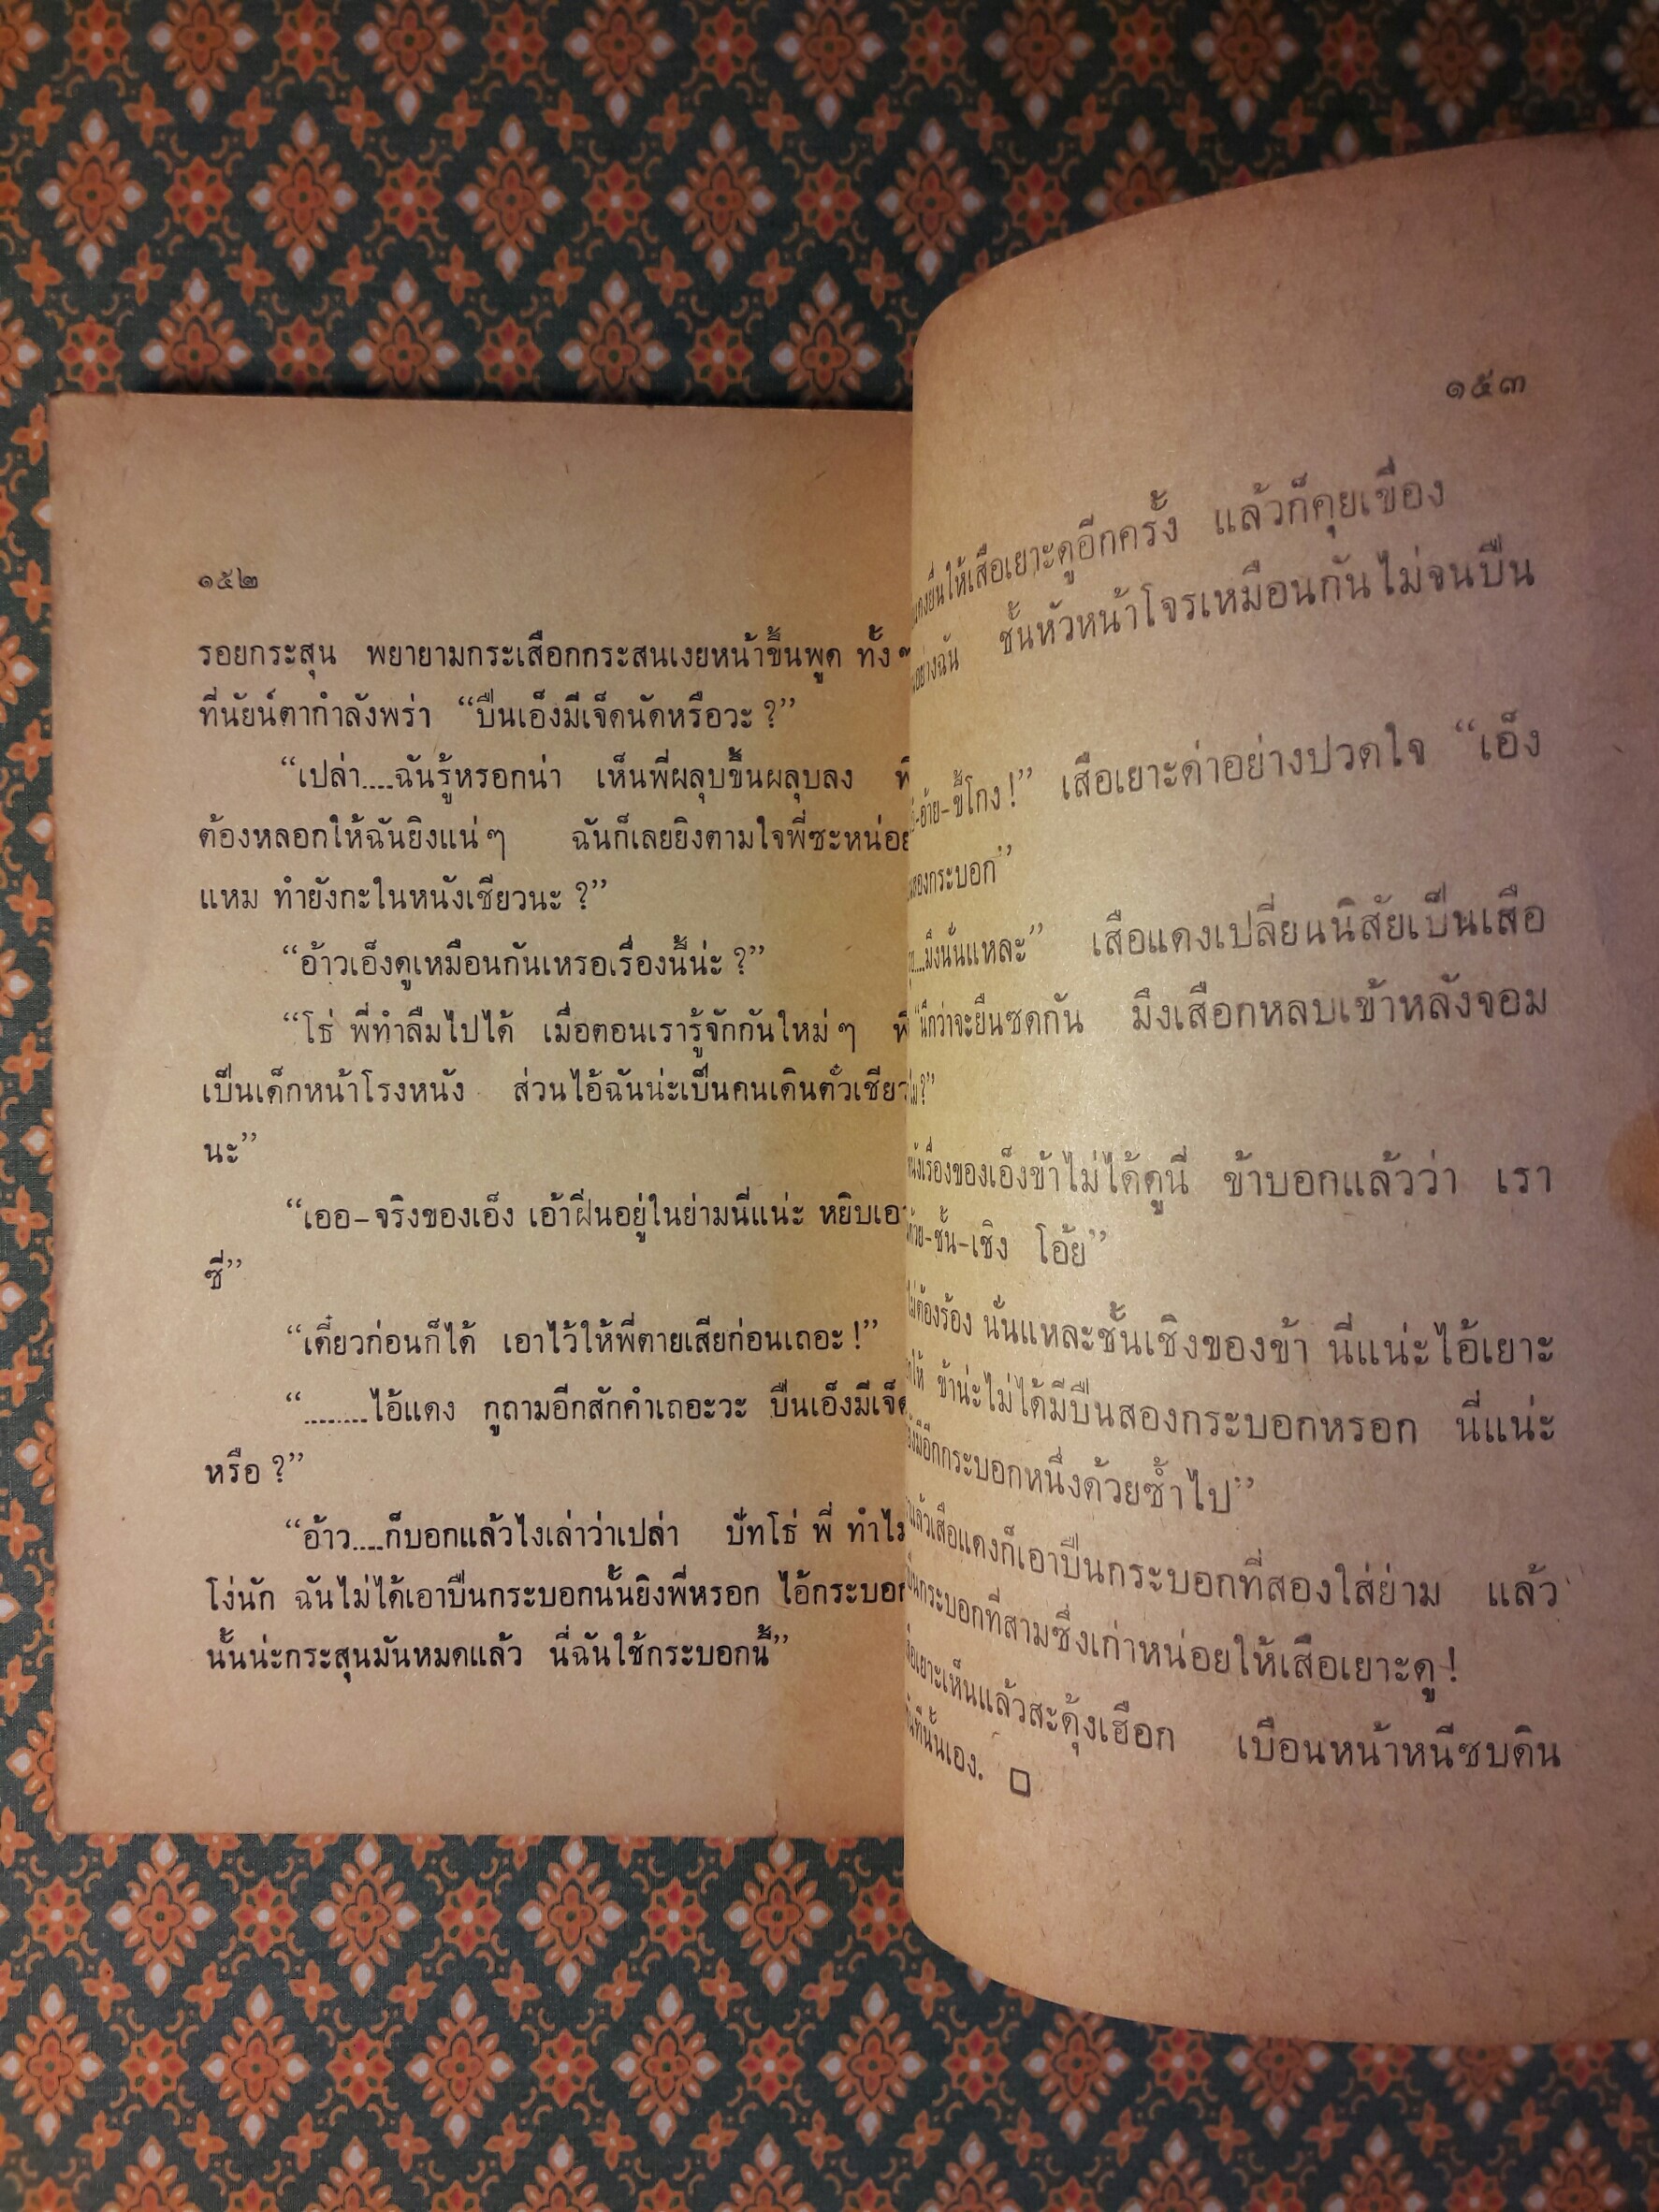 ๑๕๒
รอยกระสุน พยายามกระเสือกกระสนเงยหน้าขึ้นพูด ทั้ง ๆ
ที่นัยน์ตากำลังพร่า “ปืนเอ็งมีเจ็ดนัดหรือวะ ?”
“เปล่า....ฉันรู้หรอกน่า เห็นพี่ผลุบขึ้นผลุบลง
ต้องหลอกให้ฉันยิงแน่ ๆ ฉันก็เลยยิงตามใจพี่ซะหน่อย
แหม ทำยังกะในหนังเชียวนะ ?”
“อ้าวเอ็งดูเหมือนกันเหรอเรื่องนี้น่ะ ?”
“โธ่ พี่ทำลืมไปได้ เมื่อตอนเรารู้จักกันใหม่ ๆ
เป็นเด็กหน้าโรงหนัง ส่วนไอ้ฉันน่ะเป็นคนเดินตั๋วเชียว
นะ”
“เออ–จริงของเอ็ง เอ้าฝิ่นอยู่ในย่ามนี่แน่ะ หยิบเอา
ซี่”
“เดี๋ยวก่อนก็ได้ เอาไว้ให้พี่ตายเสียก่อนเถอะ !”
“........ไอ้แดง กูถามอีกสักคำเถอะวะ ปืนเอ็งมีเจ็ด
หรือ ?”
“อ้าว....ก็บอกแล้วไงเล่าว่าเปล่า ปั๋ทโธ่ พี่ ทำไม
โง่นัก ฉันไม่ได้เอาปืนกระบอกนั้นยิงพี่หรอก ไอ้กระบอก
นั้นน่ะกระสุนมันหมดแล้ว นี่ฉันใช้กระบอกนี้”
๑๕๓
ยื่นให้เสือเยาะดูอีกครั้ง แล้วก็คุยเขื่อง
อย่างฉัน ชั้นหัวหน้าโจรเหมือนกันไม่จนปืน
อ้าย–ขี้โกง !” เสือเยาะด่าอย่างปวดใจ “เอ็ง
สองกระบอก”
....มึงนั่นแหละ” เสือแดงเปลี่ยนนิสัยเป็นเสือ
นึกว่าจะยืนซดกัน มึงเสือกหลบเข้าหลังจอม
?”
เรื่องของเอ็งข้าไม่ได้ดูนี่ ข้าบอกแล้วว่า เรา
–ชั้น–เชิง โอ้ย”
ไม่ต้องร้อง นั่นแหละชั้นเชิงของข้า นี่แน่ะไอ้เยาะ
ให้ ข้าน่ะไม่ได้มีปืนสองกระบอกหรอก นี่แน่ะ
มีอีกกระบอกหนึ่งด้วยซ้ำไป”
แล้วเสือแดงก็เอาปืนกระบอกที่สองใส่ย่าม แล้ว
ปืนกระบอกที่สามซึ่งเก่าหน่อยให้เสือเยาะดู !
เสือเยาะเห็นแล้วสะดุ้งเฮือก เบือนหน้าหนีซบดิน
ทันทีนั้นเอง. □